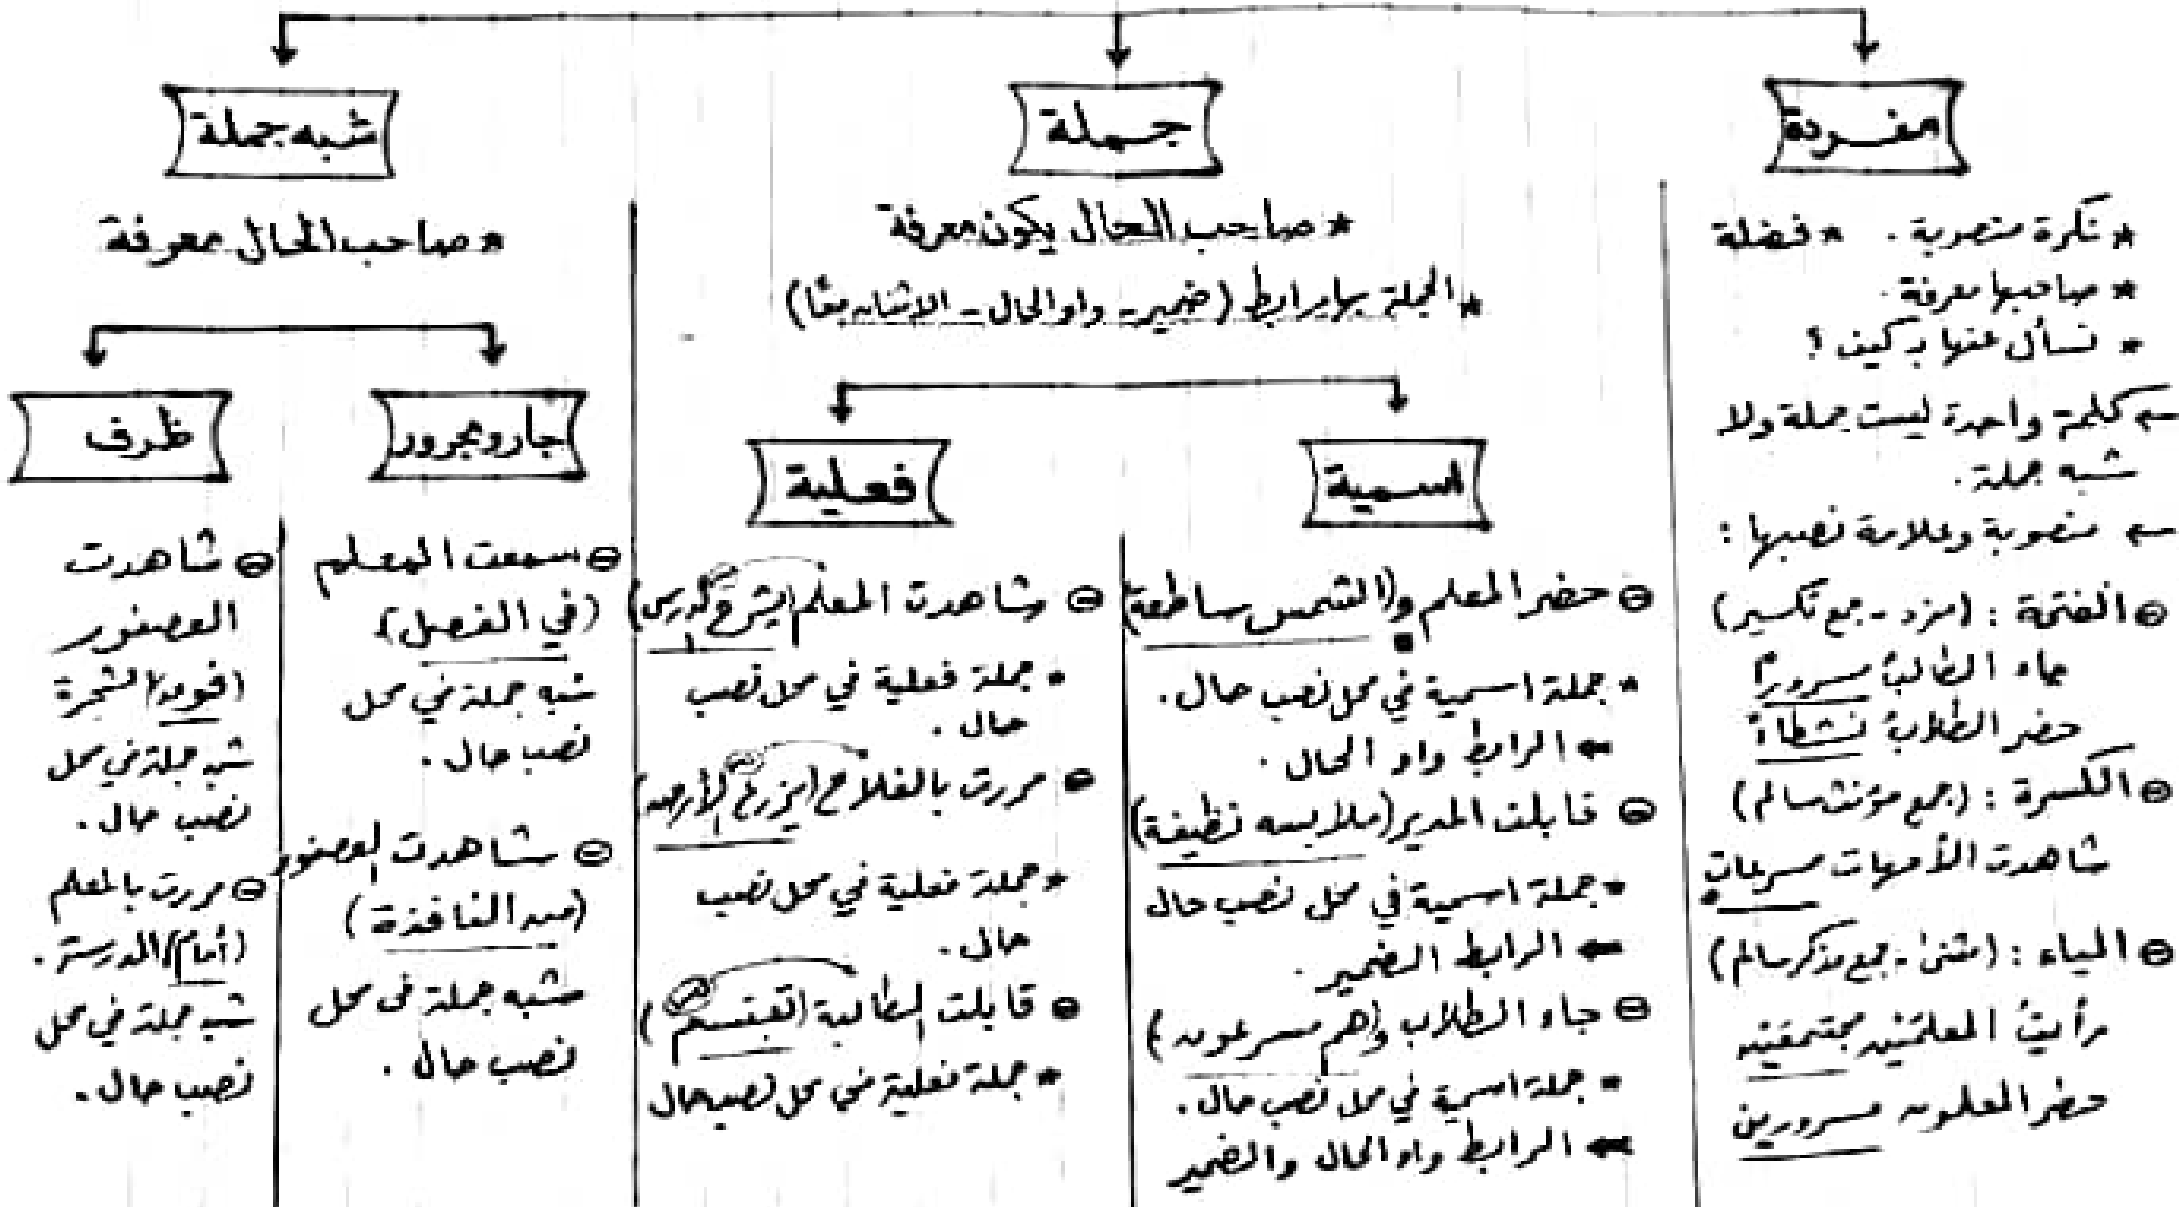 مفردة
* نكرة منصوبة . * فضلة
* صاحبها معرفة .
* نسأل عنها بـ كيف ؟
كلمة واحدة ليست جملة ولا
شبه جملة .
منصوبة وعلامة نصبها :
الفتحة : (مفرد - جمع تكسير)
جاء الطالبُ مسرورًا
حضر الطلابُ نشطاءً
الكسرة : (جمع مؤنث سالم)
شاهدت الأمهات مسرعاتٍ
الياء : (مثنى - جمع مذكر سالم)
رأيتُ المعلمَين مجتمعَين
حضر المعلمون مسرورين
جملة
* صاحب الحال يكون معرفة
* الجملة بها رابط (ضمير - واو الحال - الاثنان معًا)
اسمية
حضر المعلم و(الشمس ساطعة)
* جملة اسمية في محل نصب حال .
الرابط واو الحال .
قابلت المدير (ملابسه نظيفة)
* جملة اسمية في محل نصب حال
الرابط الضمير .
جاء الطلاب و(هم مسرعون)
* جملة اسمية في محل نصب حال .
الرابط واو الحال والضمير
فعلية
شاهدت المعلم (يشرح الدرس)
* جملة فعلية في محل نصب
حال .
مررت بالفلاح (يزرع الأرض)
* جملة فعلية في محل نصب
حال .
قابلت الطالبة (تبتسم)
* جملة فعلية في محل نصب حال
شبه جملة
* صاحب الحال معرفة
جار ومجرور
سمعت المعلم
(في الفصل)
شبه جملة في محل
نصب حال .
شاهدت العصفور
(من النافذة)
شبه جملة في محل
نصب حال .
ظرف
شاهدت
العصفور
(فوق) الشجرة
شبه جملة في محل
نصب حال .
مررت بالمعلم
(أمام) المدرسة .
شبه جملة في محل
نصب حال .